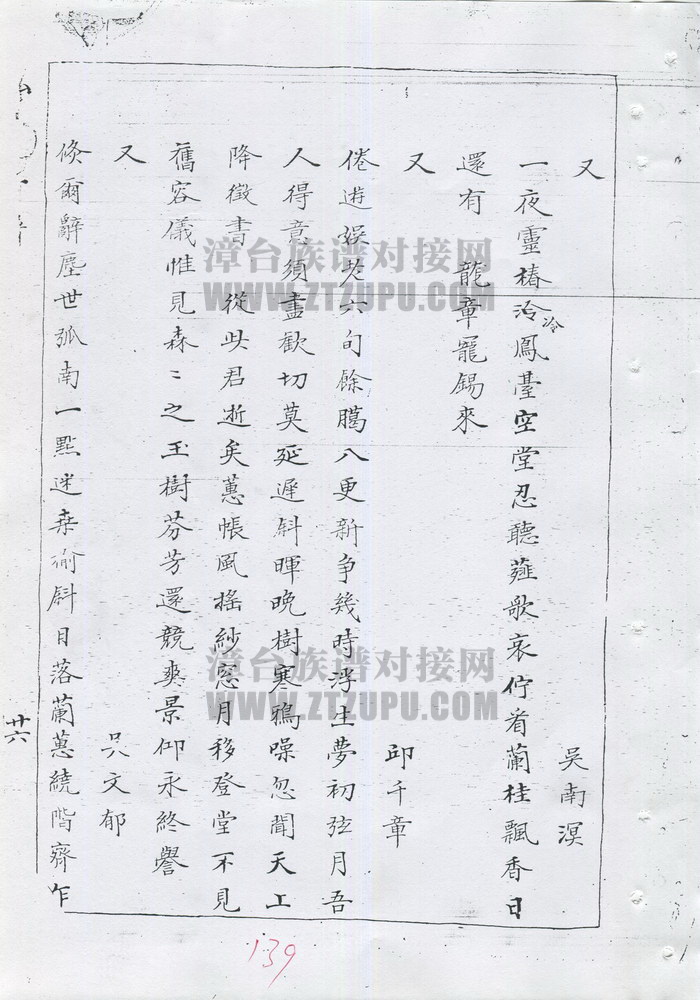 又 吳南溟
一夜靈椿泠鳳臺空堂忍聽薤歌哀佇看蘭桂飄香日
冷
還有 龍章寵錫來
又 邱千章
倦遊娱老六旬餘臈八更新争幾時浮生夢初弦月吾
人得意須盡歡切莫延遲斜暉晚樹寒鴉噪忽聞天工
降徵書 從此君逝矣蕙帳風摇紗窓月移登堂不見
舊容儀惟見森〻之玉樹芬芳還競爽景仰永終譽
又 吳文郁
倏爾辭塵世弧南一點迷桑榆斜日落蘭蕙繞階齊乍
廿六
139
漳台族谱对接网
WWW.ZTZUPU.COM
漳台族谱对接网
WWW.ZTZUPU.COM